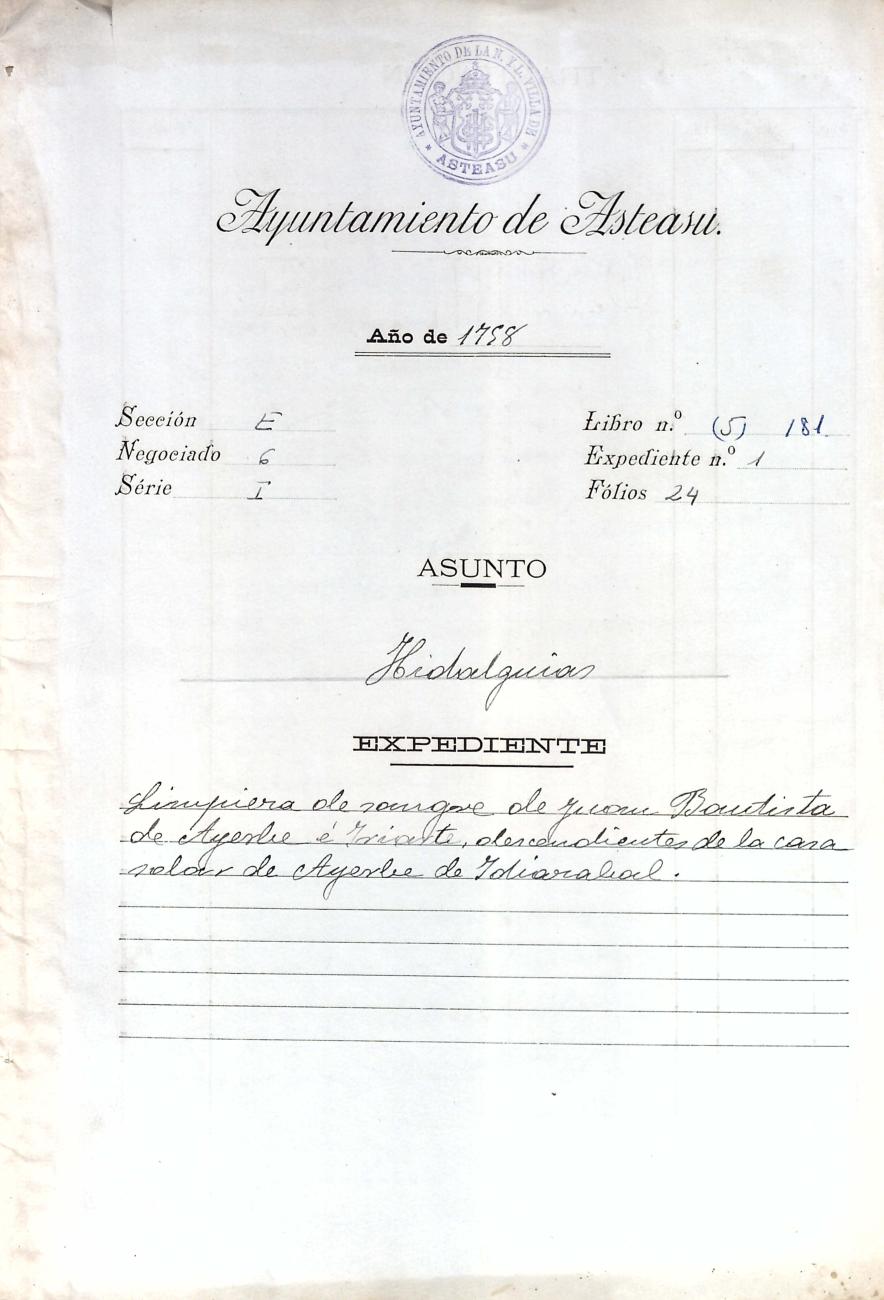 AYUNTAMIENTO DE LA N. Y L. VILLA DE
* ASTEASU *
Ayuntamiento de Asteasu.
Año de 1758
Sección E
Negociado 6
Série I
Libro n.º (5) 181
Expediente n.º 1
Fólios 24
ASUNTO
Hidalguias
EXPEDIENTE
Limpieza de sangre de Juan Bautista
de Ayerbe é Iriarte, descendientes de la casa
solar de Ayerbe de Idiazabal.